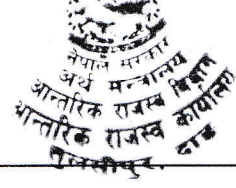 नेपाल सरकार
अर्थ मन्त्रालय
आन्तरिक राजस्व विभाग
आन्तरिक राजस्व कार्यालय
तुलसीपुर, दाङ